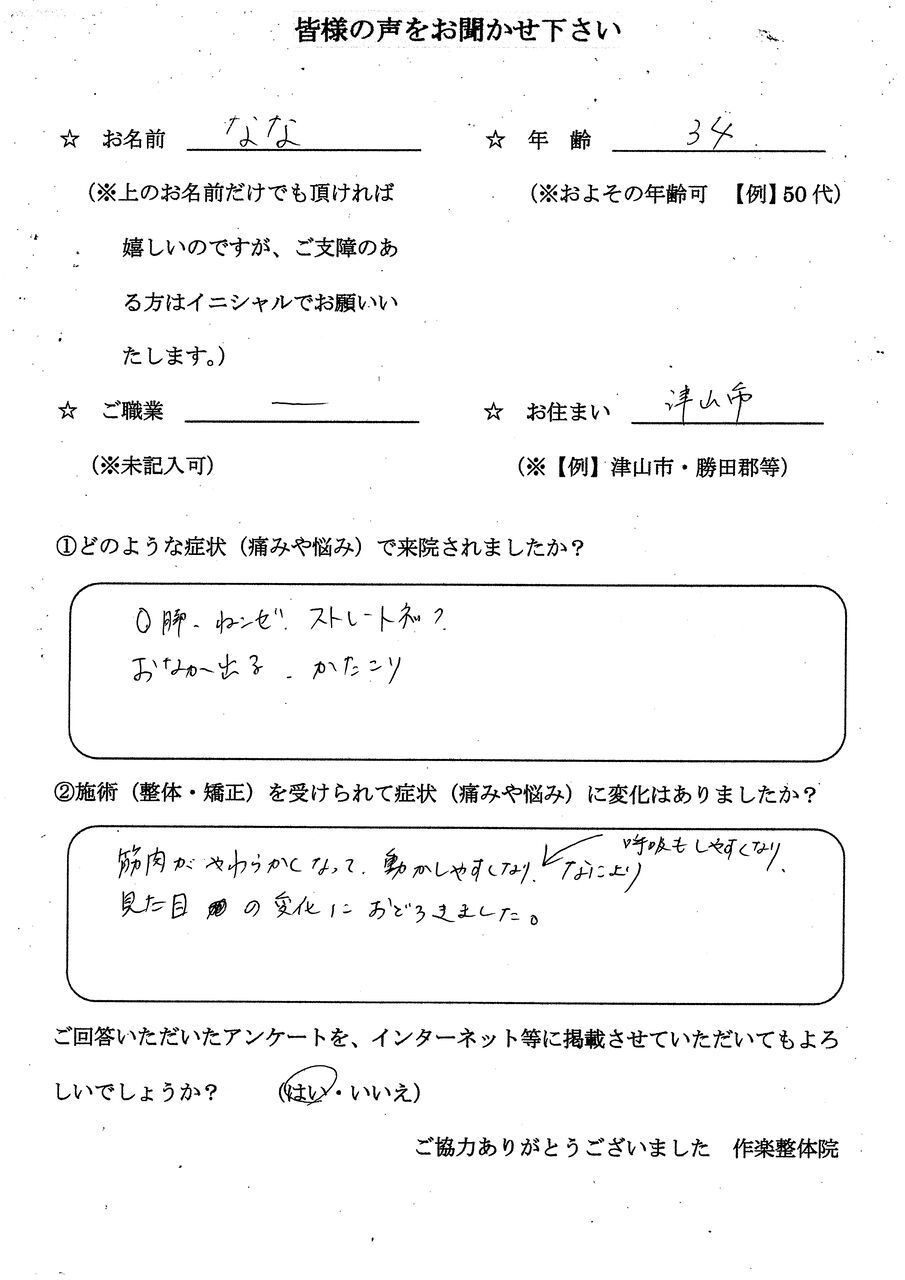 皆様の声をお聞かせ下さい
☆ お名前 なな ☆ 年 齢 34
(※上のお名前だけでも頂ければ (※およその年齢可 【例】50代)
嬉しいのですが、ご支障のあ
る方はイニシャルでお願いい
たします。)
☆ ご職業 ― ☆ お住まい 津山市
(※未記入可) (※【例】津山市・勝田郡等)
①どのような症状(痛みや悩み)で来院されましたか?
O脚、ねこぜ、ストレートネック
おなか出る、かたこり
②施術(整体・矯正)を受けられて症状(痛みや悩み)に変化はありましたか?
呼吸もしやすくなり、
筋肉がやわらかくなって、動かしやすくなり、なにより
見た目の変化におどろきました。
ご回答いただいたアンケートを、インターネット等に掲載させていただいてもよろ
しいでしょうか? (はい・いいえ)
ご協力ありがとうございました 作楽整体院